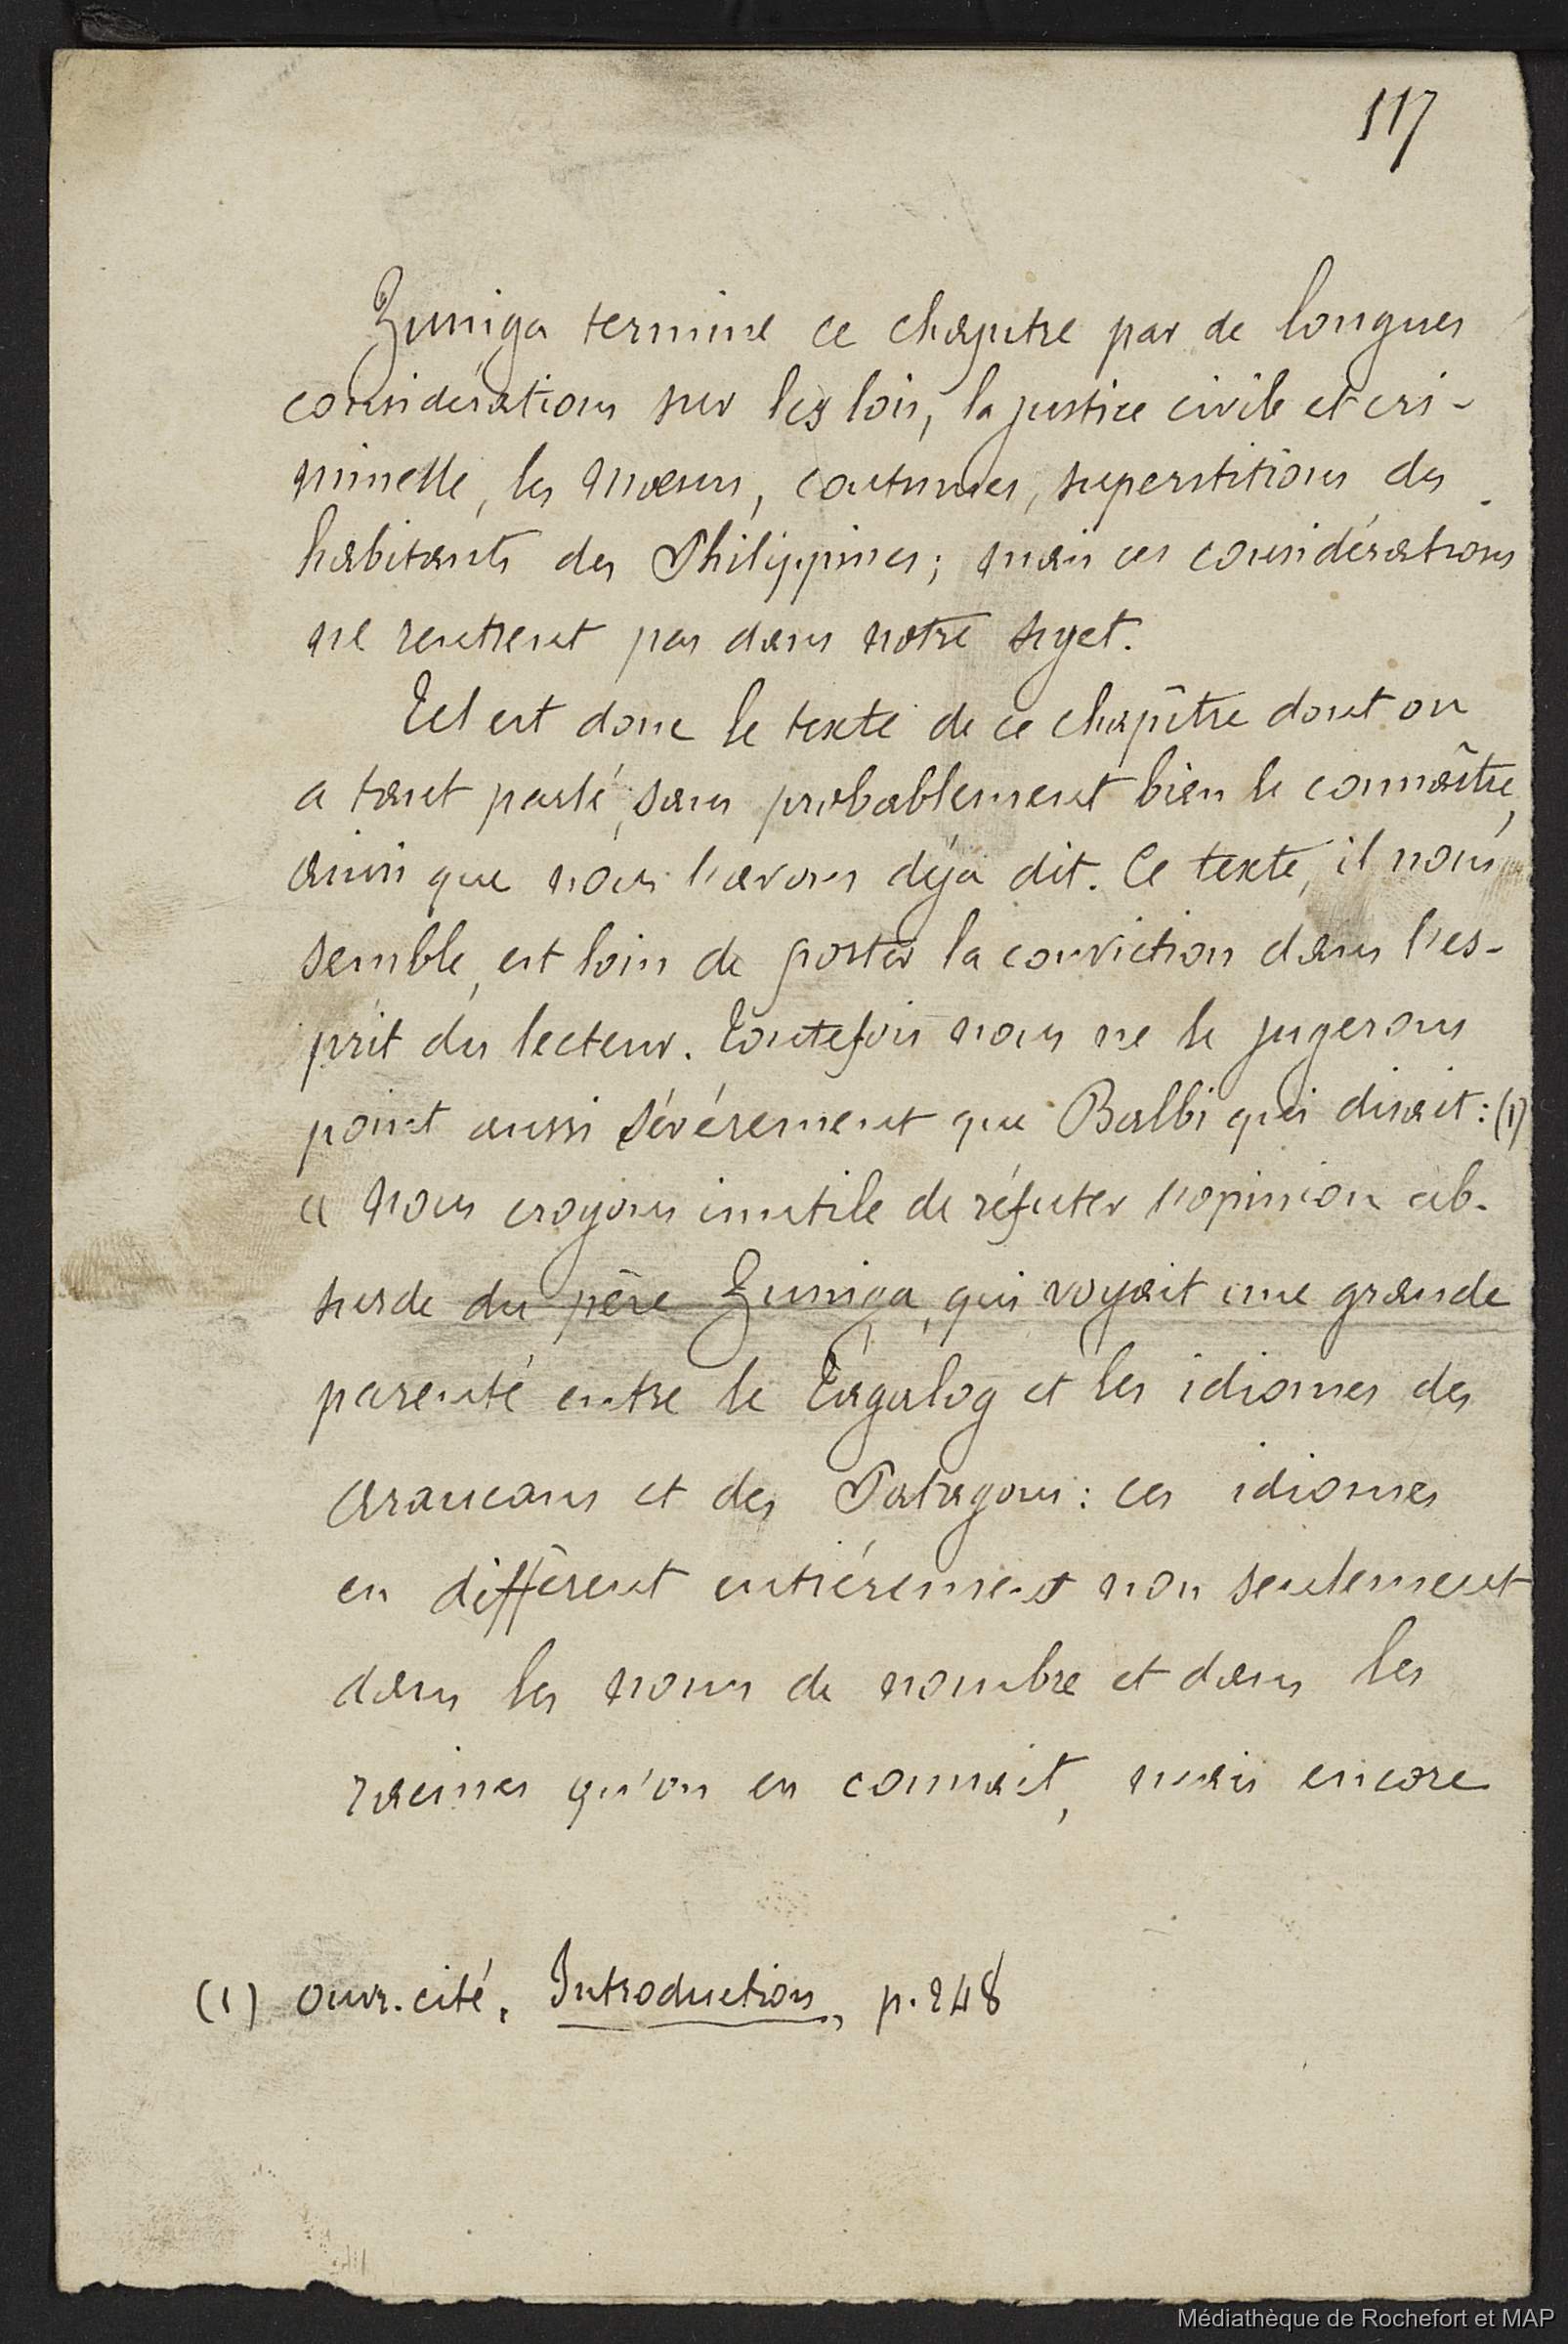 117
Zuniga termine ce chapitre par de longues
considérations sur les lois, la justice civile et cri-
minelle, les mœurs, coutumes, superstitions des
habitants des Philippines; mais ces considérations
ne rentrent pas dans notre sujet.
Tel est donc le texte de ce chapître dont on
a tant parlé, sans probablement bien le connaître,
ainsi que nous l'avons déja dit. Ce texte, il nous
semble, est loin de porter la conviction dans l'es-
prit du lecteur. Toutefois nous ne le jugerons
point aussi sévérement que Balbi qui disait: (1)
« Nous croyons inutile de réfuter l'opinion ab-
surde du père Zuniga, qui voyait une grande
parenté entre le Tagalog et les idiomes des
Araucans et des Patagons: ces idiomes
en diffèrent entiérement non seulement
dans les noms de nombre et dans les
racines qu'on en connait, mais encore
(1) Ouvr. cité, Introduction, p. 248
Médiathèque de Rochefort et MAP